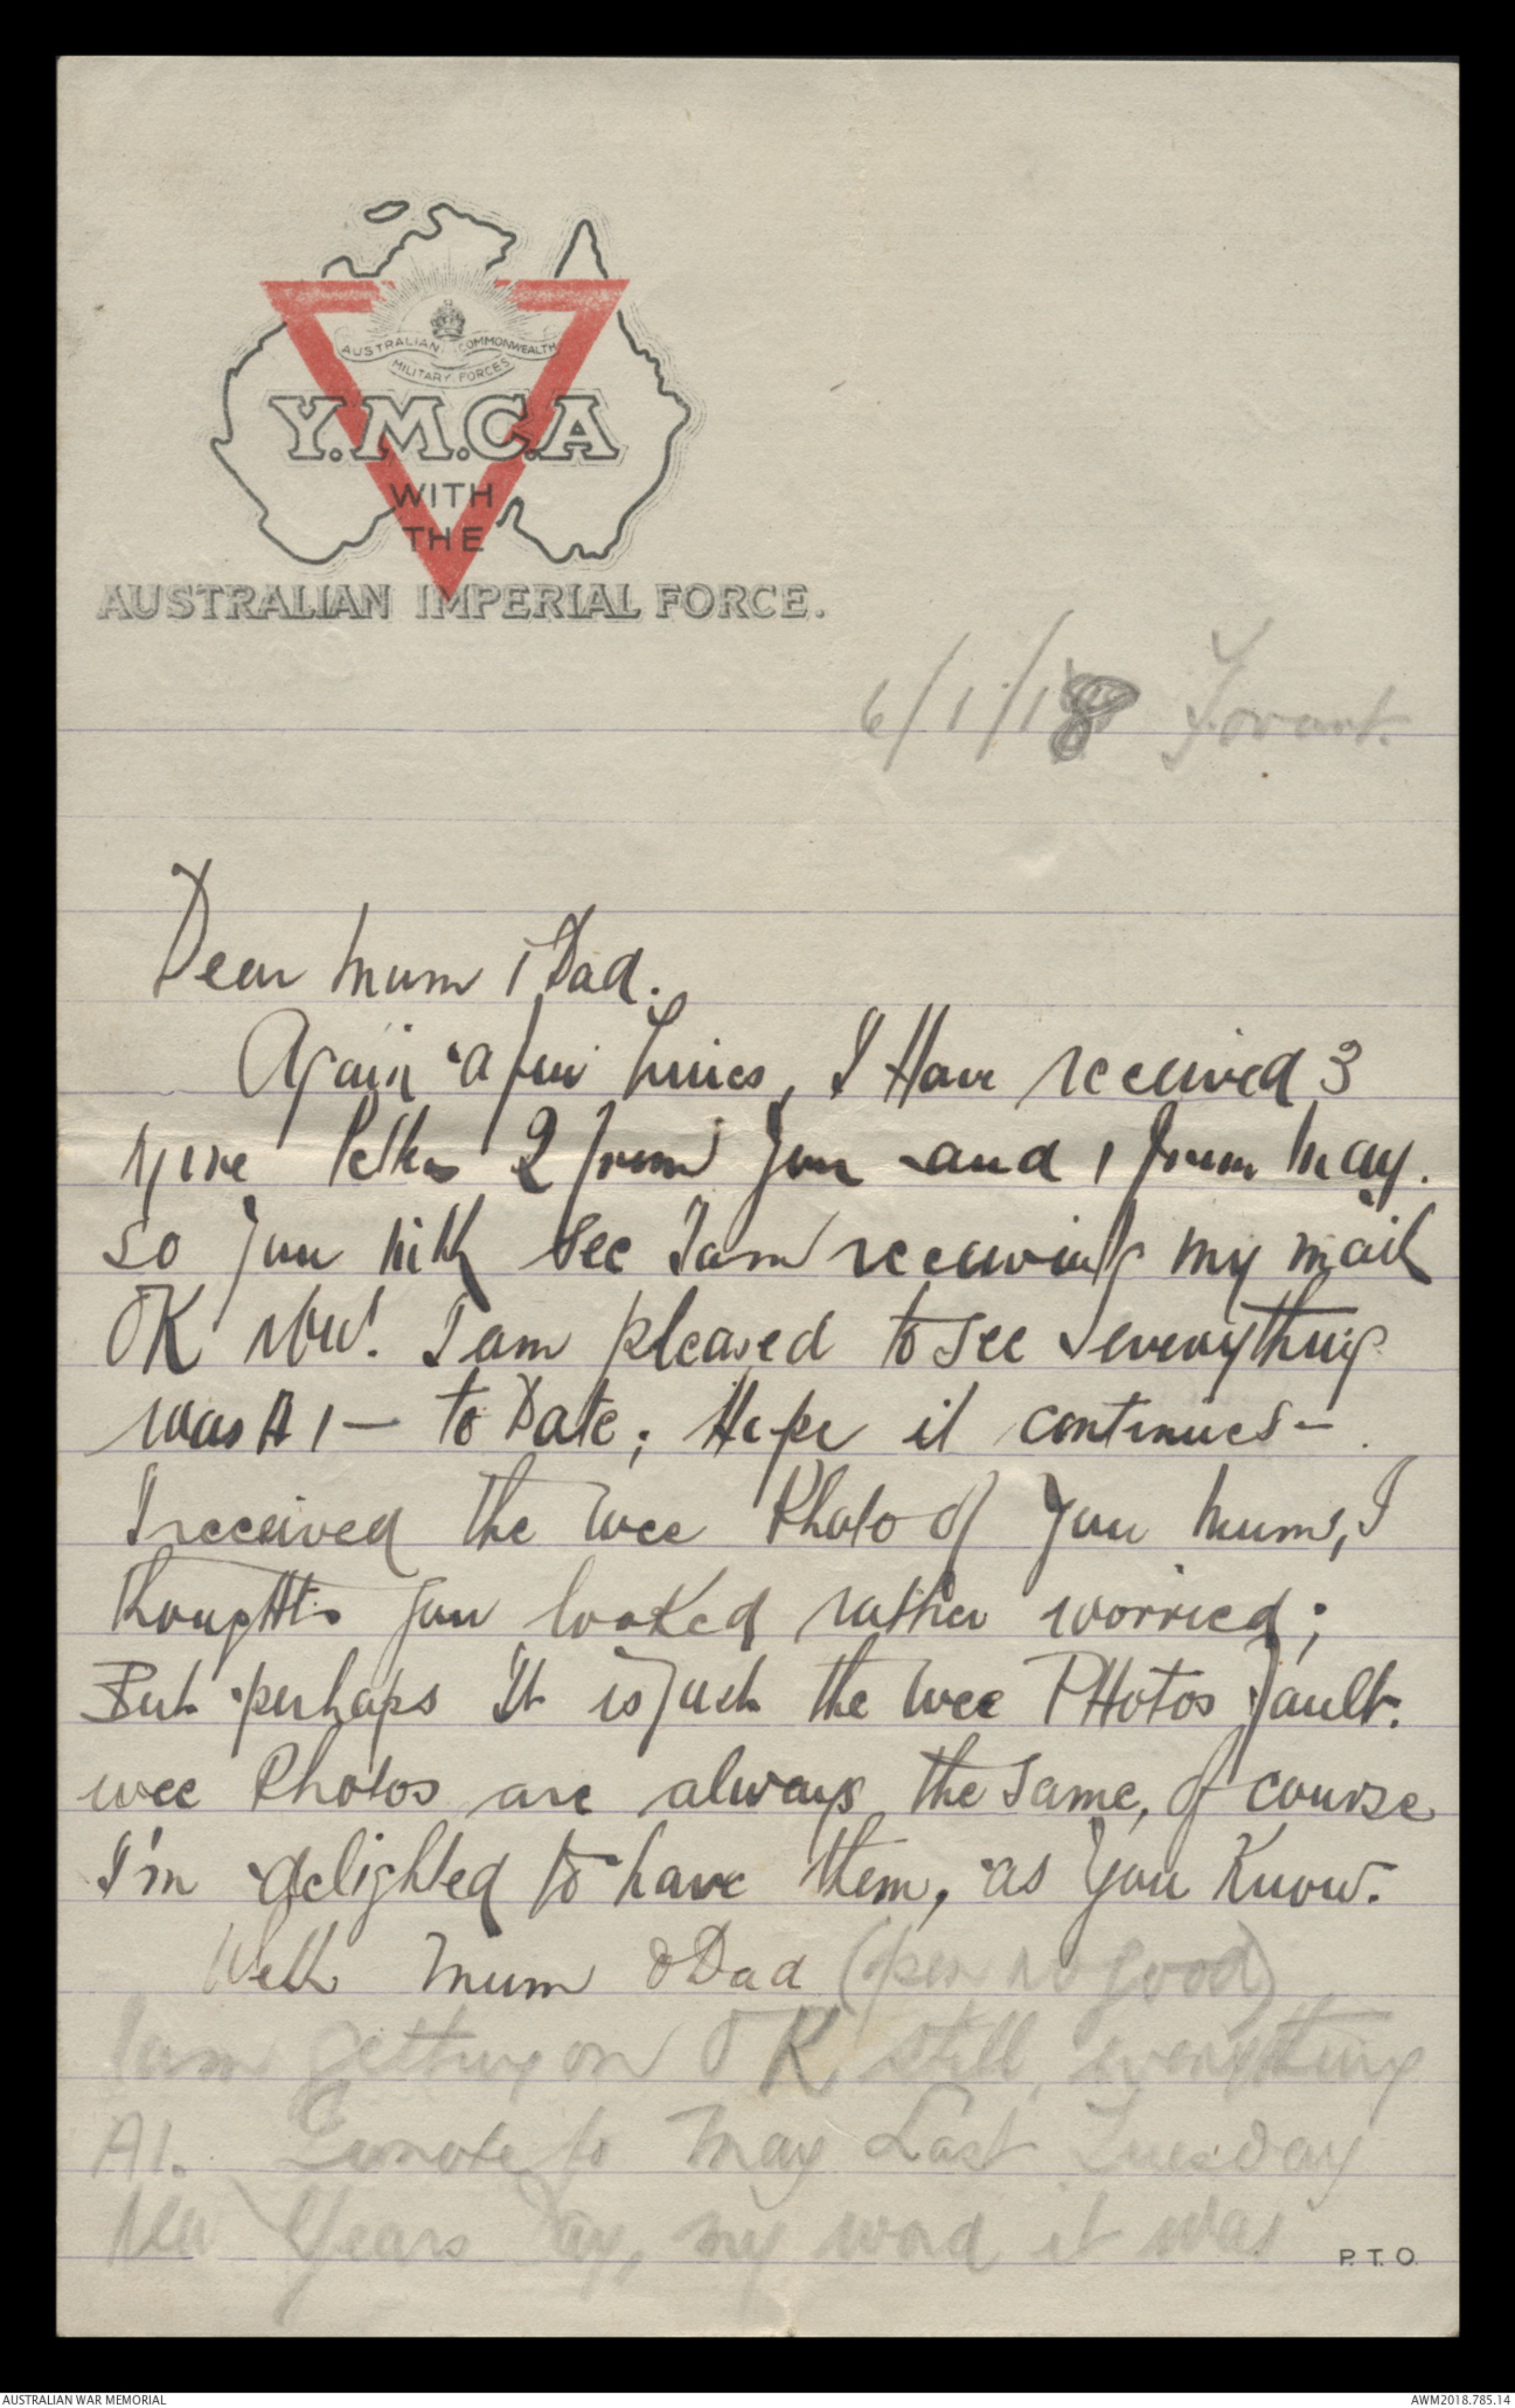 AUSTRALIAN COMMONWEALTH
MILITARY FORCES
Y.M.C.A
WITH
THE
AUSTRALIAN IMPERIAL FORCE.
6/1/18 Fovant.
Dear Mum & Dad.
Again a few lines, I Have received 3
more letters 2 from you and 1 from May.
So you will see I am receiving my mail
OK now. I am pleased to see everything
was A1 - to Date; Hope it continues -
I received the wee Photo of you Mum, I
thought you looked rather worried;
But perhaps It is just the wee PHotos fault.
wee Photos are always the same, of course
I'm delighted to have them, as you Know.
Well Mum & Dad (pen no good)
I am getting on OK still, everything
A1. I wrote to May Last Tuesday
New Years Day, my word it was
P.T.O.
AUSTRALIAN WAR MEMORIAL
AWM2018.785.14